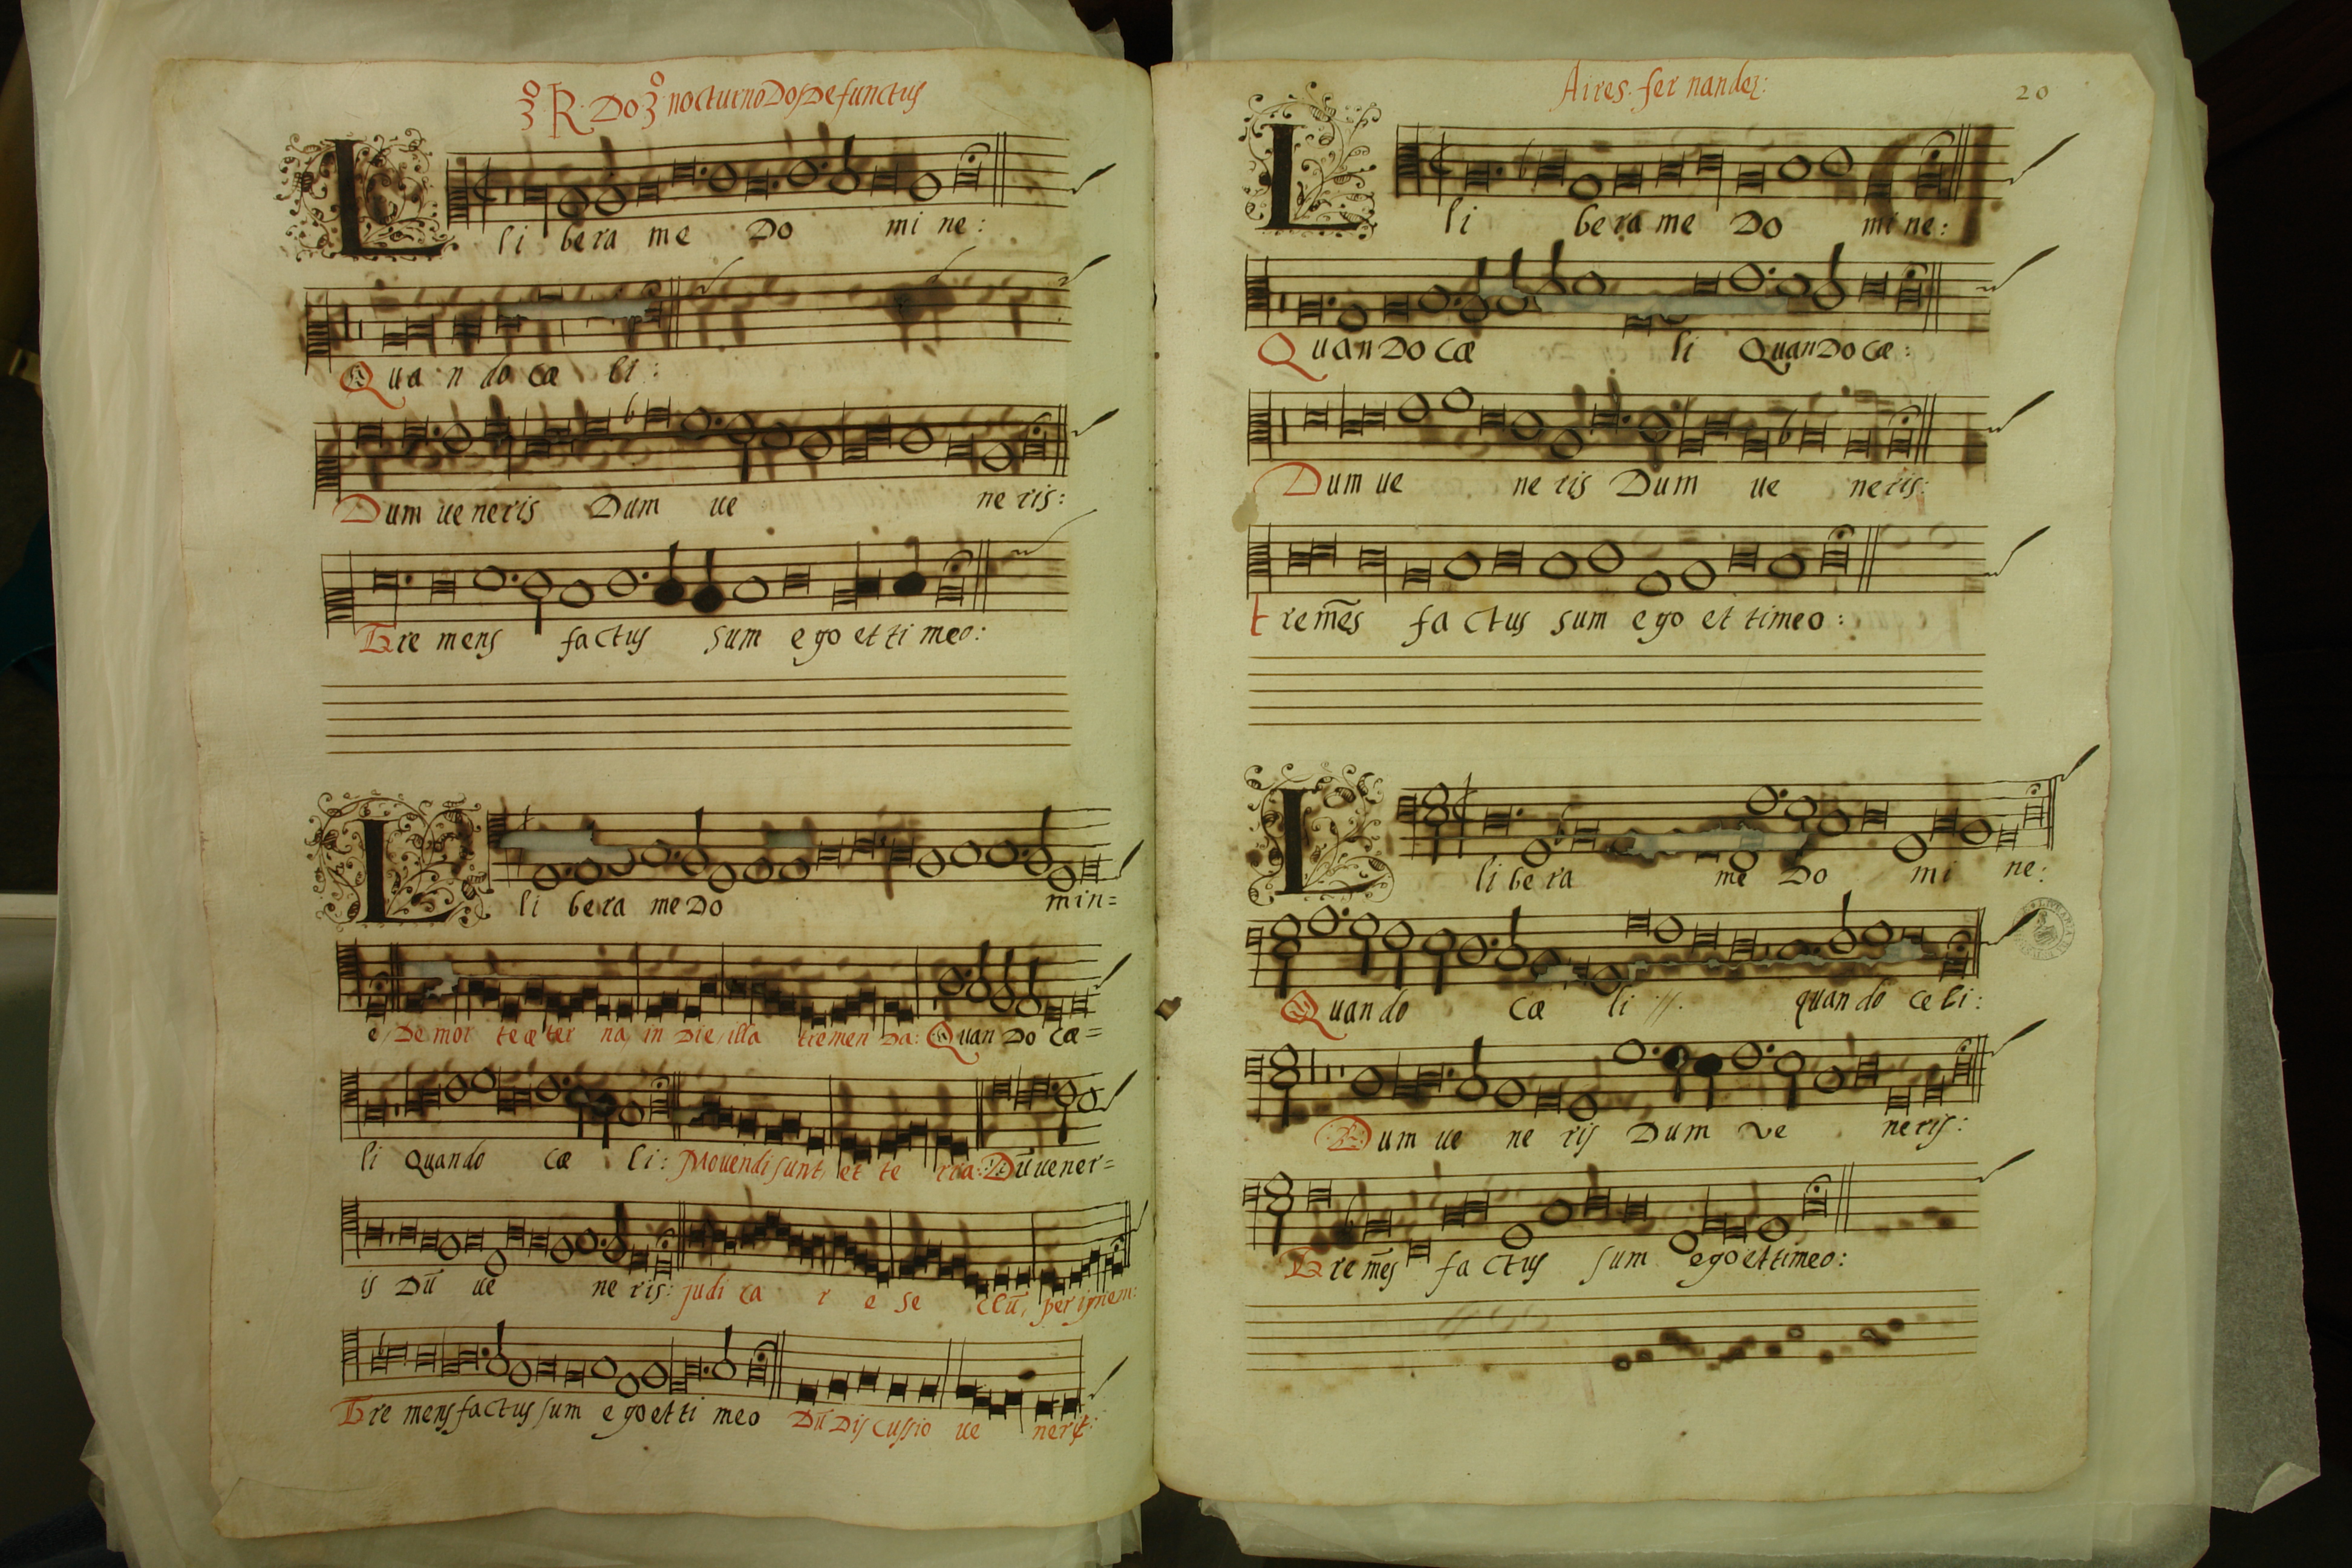 3º R. Do 3º nocturno Dos Defunctus
Li bera me Do mi ne:
Quando cæ li:
Dum ueneris Dum ue ne ris:
Tre mens factus sum ego et ti meo:
Li bera me Do min=
e, De mor te æter na, in Die, illa tremen Da: Quan Do cæ=
li Quando cæ li: Mouendi sunt, et te rra: Dũ uener=
is Dũ ue ne ris: judi ca r e se clũ, per ignem:
Tre mens factus sum ego et ti meo Dũ Discussio ue nerit:
Aires. fer nandez:
20
Li bera me Do mi ne:
Quan Do cæ li Quan Do cæ:
Dum ue ne ris Dum ue ne ris:
tre mẽs fa ctus sum ego et timeo:
Li be ra me Do mi ne:
Quan do cæ li //. quan do ce li:
Dum ue ne ris Dum ve ne ris:
Tre mẽs fa ctus sum ego et timeo: